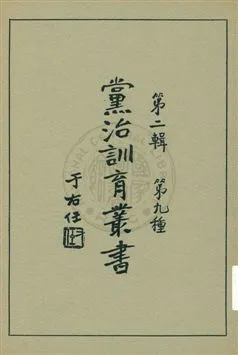 第二輯　第九種
黨治訓育叢書
于右任